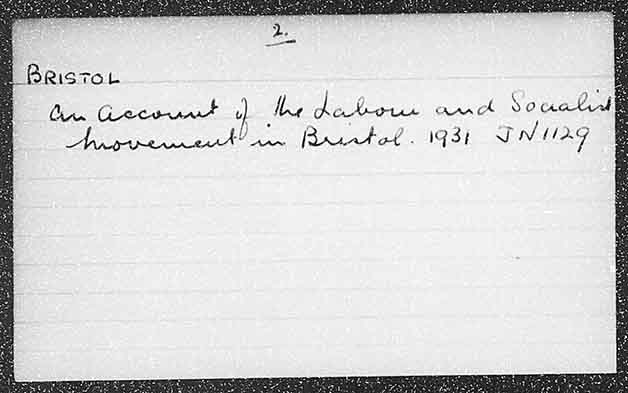 2.
BRISTOL
An Account of the Labour and Socialist
Movement in Bristol. 1931 JN1129